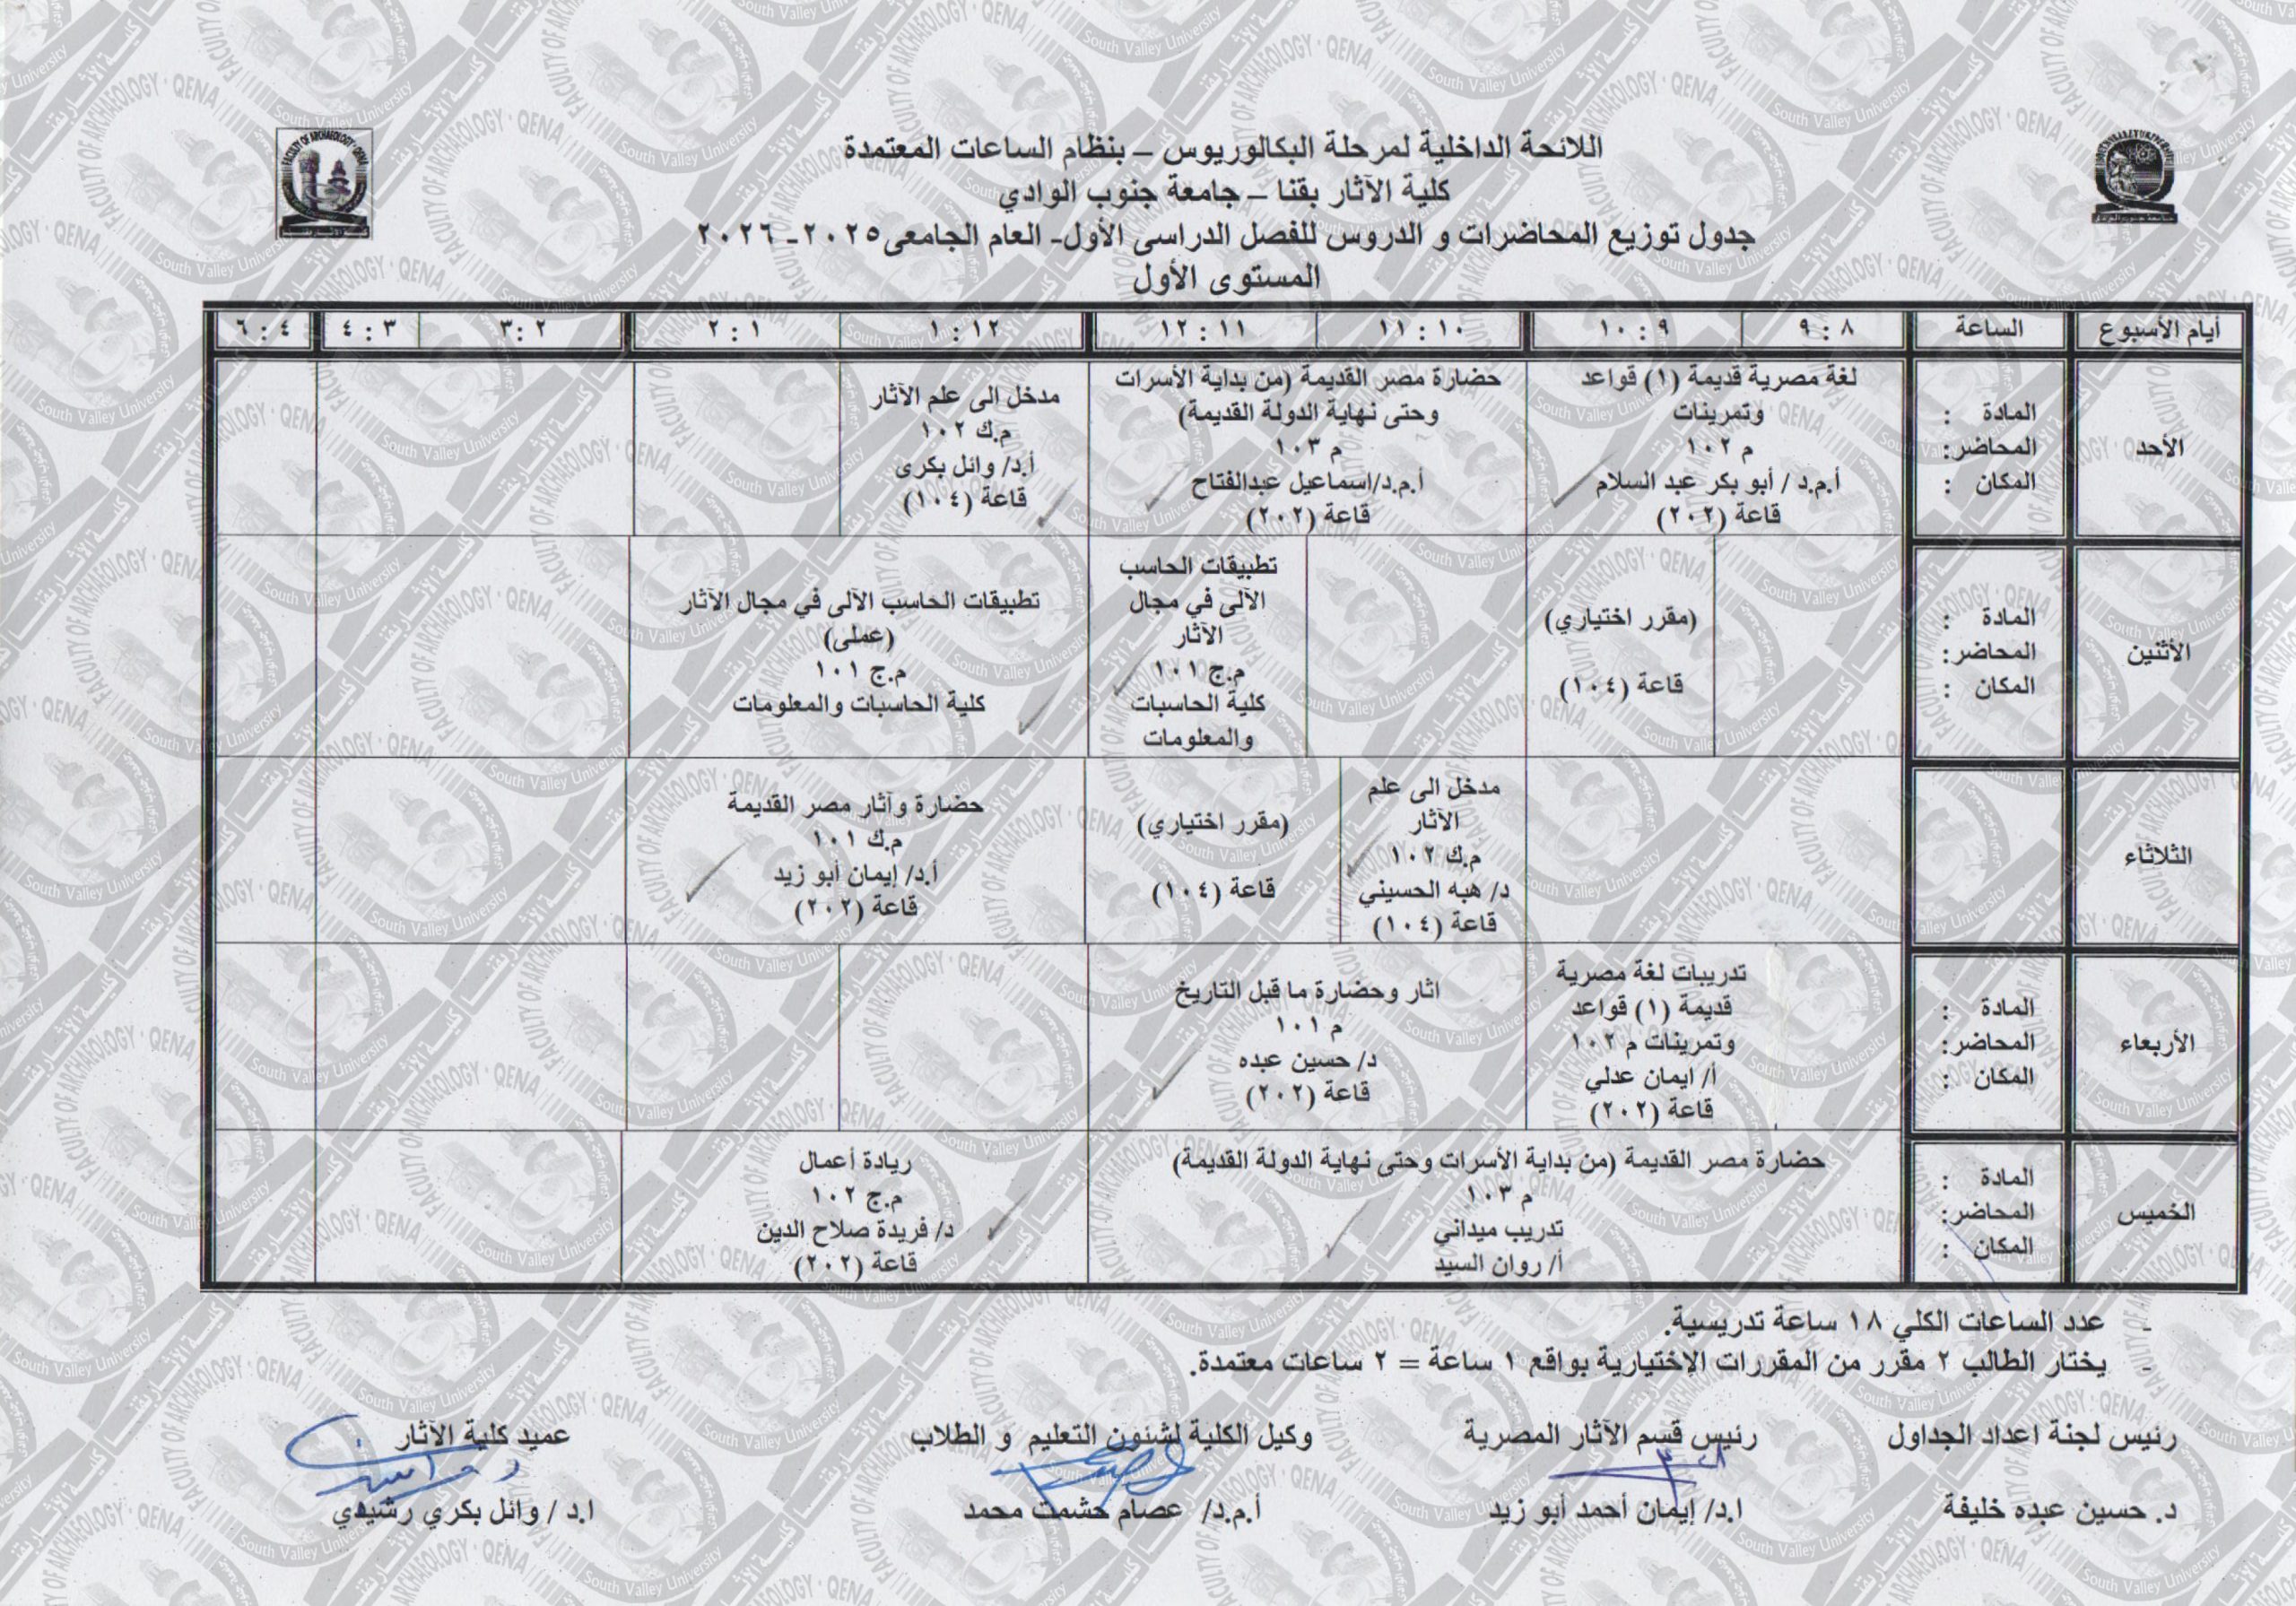 اللائحة الداخلية لمرحلة البكالوريوس – بنظام الساعات المعتمدة
كلية الآثار بقنا – جامعة جنوب الوادي
جدول توزيع المحاضرات و الدروس للفصل الدراسى الأول- العام الجامعى ٢٠٢٥- ٢٠٢٦
المستوى الأول
أيام الأسبوع
الساعة
٨ : ٩
٩ : ١٠
١٠ : ١١
١١ : ١٢
١٢ : ١
١ : ٢
٢ :٣
٣ : ٤
٤ : ٦
الأحد
المادة :
المحاضر:
المكان :
لغة مصرية قديمة (١) قواعد
وتمرينات
م ١٠٢
أ.م.د / أبو بكر عبد السلام
قاعة (٢٠٢)
حضارة مصر القديمة (من بداية الأسرات
وحتى نهاية الدولة القديمة)
م ١٠٣
أ.م.د/اسماعيل عبدالفتاح
قاعة (٢٠٢)
مدخل الى علم الآثار
م.ك ١٠٢
أ.د/ وائل بكرى
قاعة (١٠٤)
الأثنين
المادة :
المحاضر:
المكان :
(مقرر اختياري)
قاعة (١٠٤)
تطبيقات الحاسب
الآلى في مجال
الآثار
م.ج ١٠١
كلية الحاسبات
والمعلومات
تطبيقات الحاسب الآلى في مجال الآثار
(عملى)
م.ج ١٠١
كلية الحاسبات والمعلومات
الثلاثاء
مدخل الى علم
الآثار
م.ك ١٠٢
د/ هبه الحسيني
قاعة (١٠٤)
(مقرر اختياري)
قاعة (١٠٤)
حضارة وآثار مصر القديمة
م.ك ١٠١
أ.د/ إيمان أبو زيد
قاعة (٢٠٢)
الأربعاء
المادة :
المحاضر:
المكان :
تدريبات لغة مصرية
قديمة (١) قواعد
وتمرينات م ١٠٢
أ/ ايمان عدلي
قاعة (٢٠٢)
اثار وحضارة ما قبل التاريخ
م ١٠١
د/ حسين عبده
قاعة (٢٠٢)
الخميس
المادة :
المحاضر:
المكان :
حضارة مصر القديمة (من بداية الأسرات وحتى نهاية الدولة القديمة)
م ١٠٣
تدريب ميداني
أ/ روان السيد
ريادة أعمال
م.ج ١٠٢
د/ فريدة صلاح الدين
قاعة (٢٠٢)
- عدد الساعات الكلي ١٨ ساعة تدريسية.
- يختار الطالب ٢ مقرر من المقررات الإختيارية بواقع ١ ساعة = ٢ ساعات معتمدة.
رئيس لجنة اعداد الجداول
رئيس قسم الآثار المصرية
وكيل الكلية لشئون التعليم و الطلاب
عميد كلية الآثار
د. حسين عبده خليفة
ا.د/ إيمان أحمد أبو زيد
أ.م.د/ عصام حشمت محمد
ا.د / وائل بكري رشيدي
FACULTY OF ARCHAEOLOGY · QENA
South Valley University